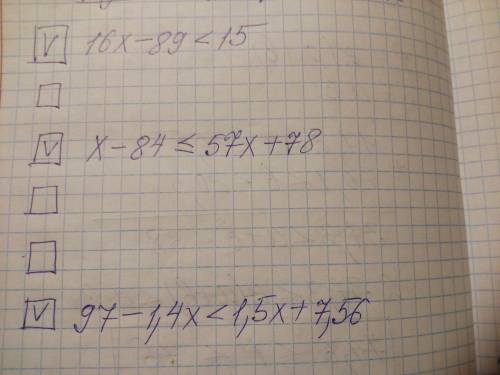 V 16x-89<15
V x-84≤57x+78
V 97-1,4x<1,5x+7,56